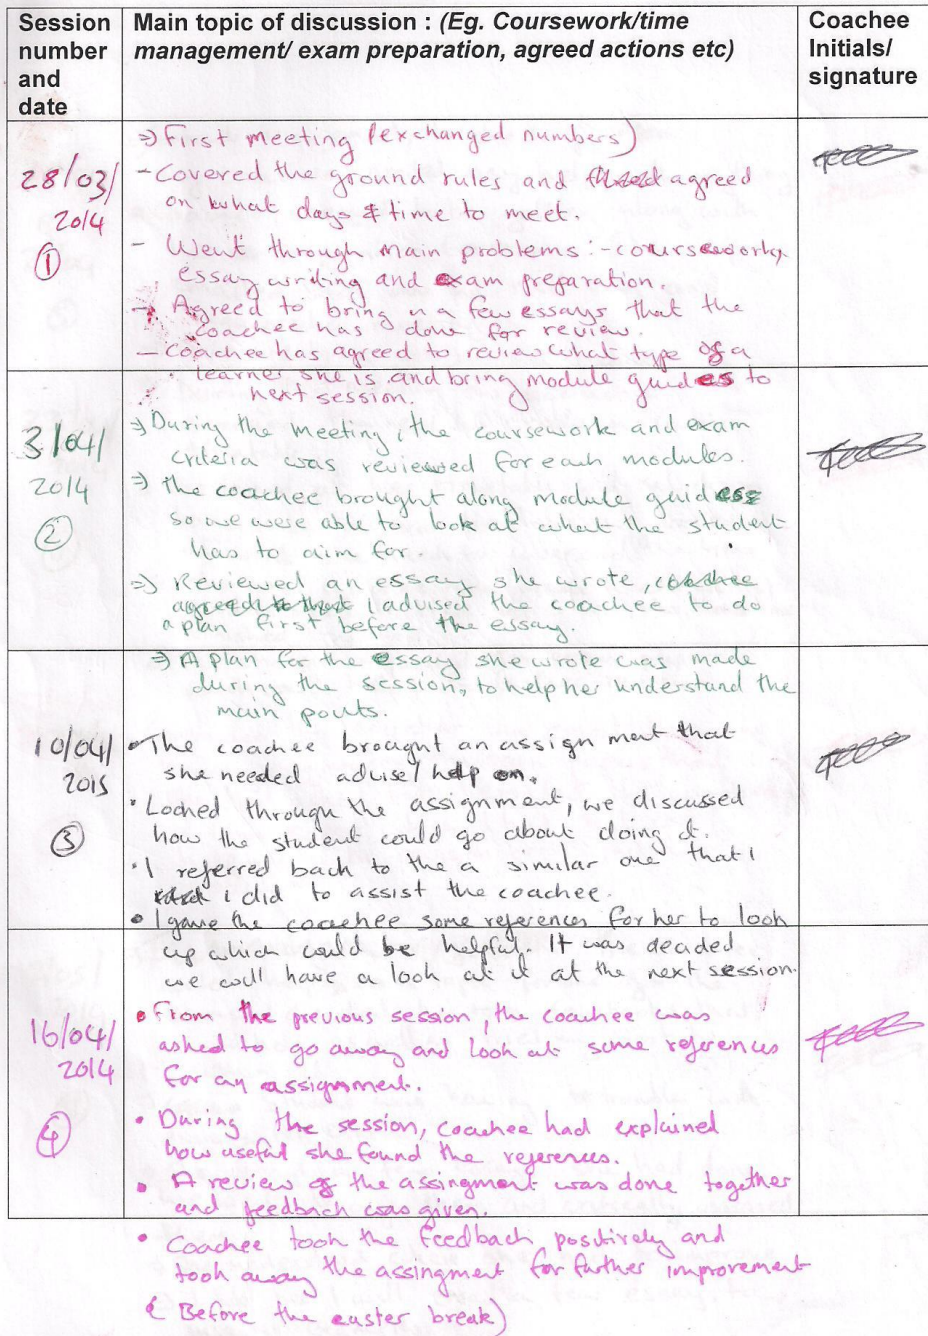 Session number and date
Main topic of discussion : (Eg. Coursework/time management/ exam preparation, agreed actions etc)
Coachee Initials/ signature
28/03/
2014
①
⇒ First meeting (exchanged numbers)
- Covered the ground rules and agreed
on what days & time to meet.
- Went through main problems:- coursework,
essay writing and exam preparation.
→ Agreed to bring in a few essays that the
coachee has done for review.
- Coachee has agreed to review what type of a
learner she is and bring module guides to
next session.
3/04/
2014
②
⇒ During the meeting, the coursework and exam
criteria was reviewed for each modules.
⇒ The coachee brought along module guides
so we were able to look at what the student
has to aim for.
⇒ Reviewed an essay she wrote, coachee
agreed I advised the coachee to do
a plan first before the essay.
⇒ A plan for the essay she wrote was made
during the session, to help her understand the
main points.
10/04/
2015
③
• The coachee brought an assignment that
she needed advise/ help on.
• Looked through the assignment, we discussed
how the student could go about doing it.
• I referred back to the a similar one that I
I did to assist the coachee.
• I gave the coachee some references for her to look
up which could be helpful. It was decided
we will have a look at it at the next session.
16/04/
2014
④
• From the previous session, the coachee was
asked to go away and look at some references
for an assignment.
• During the session, coachee had explained
how useful she found the references.
• A review of the assingment was done together
and feedback was given.
• Coachee took the feedback positively and
took away the assingment for further improvement
(Before the easter break)